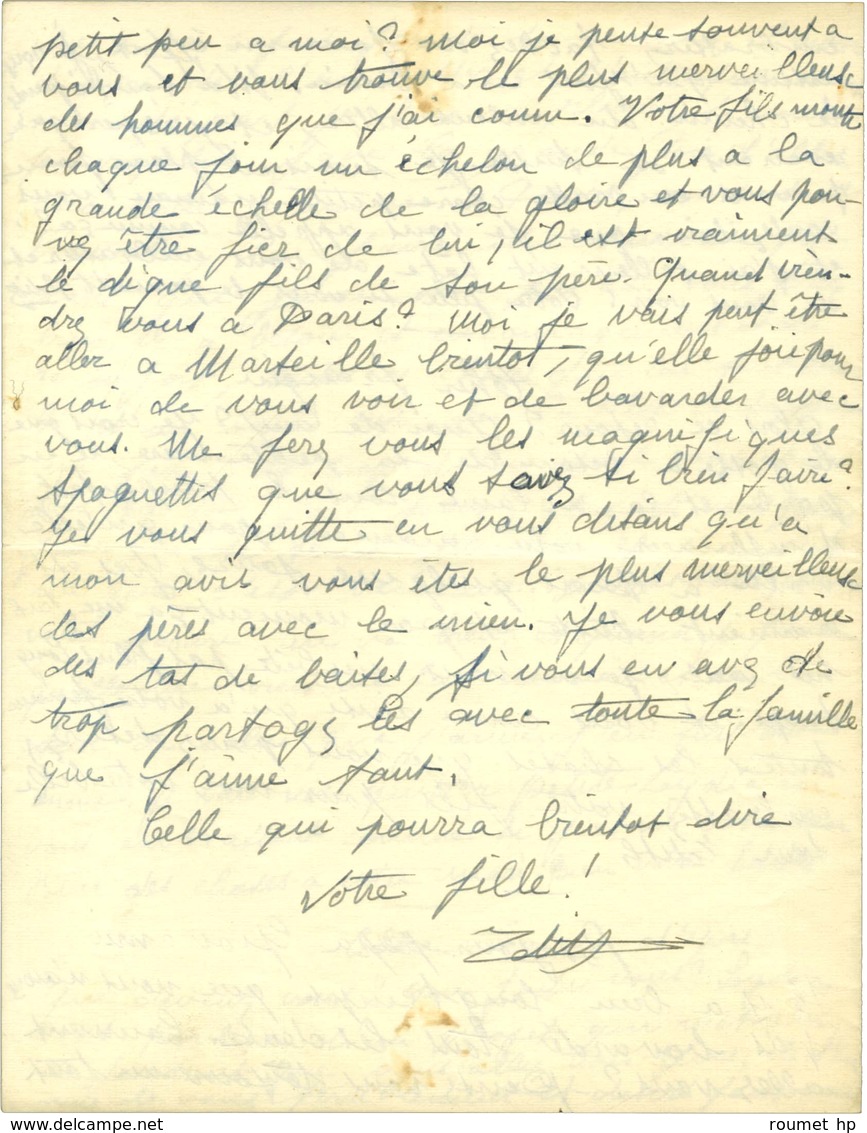 petit peu a moi? Moi je pense souvent a
vous et vous trouve le plus merveilleuse
des hommes que j'ai connu. Votre fils monte
chaque jour un échelon de plus a la
grande échelle de la gloire et vous pou-
vez être fier de lui, il est vraiment
le digne fils de son père. Quand vien-
drez vous a Paris? Moi je vais peut être
aller a Marseille bientot, qu'elle joie pour
moi de vous voir et de bavarder avec
vous. Me ferez vous les magnifiques
spaguettis que vous savez si bien faire?
Je vous quitte en vous disans qu'a
mon avis vous êtes le plus merveilleuse
des pères avec le mien. Je vous envoie
des tas de baises, si vous en avez de
trop partagez les avec toute la famille
que j'aime tant.
Celle qui pourra bientot dire
Votre fille!
Edith
roumet hp